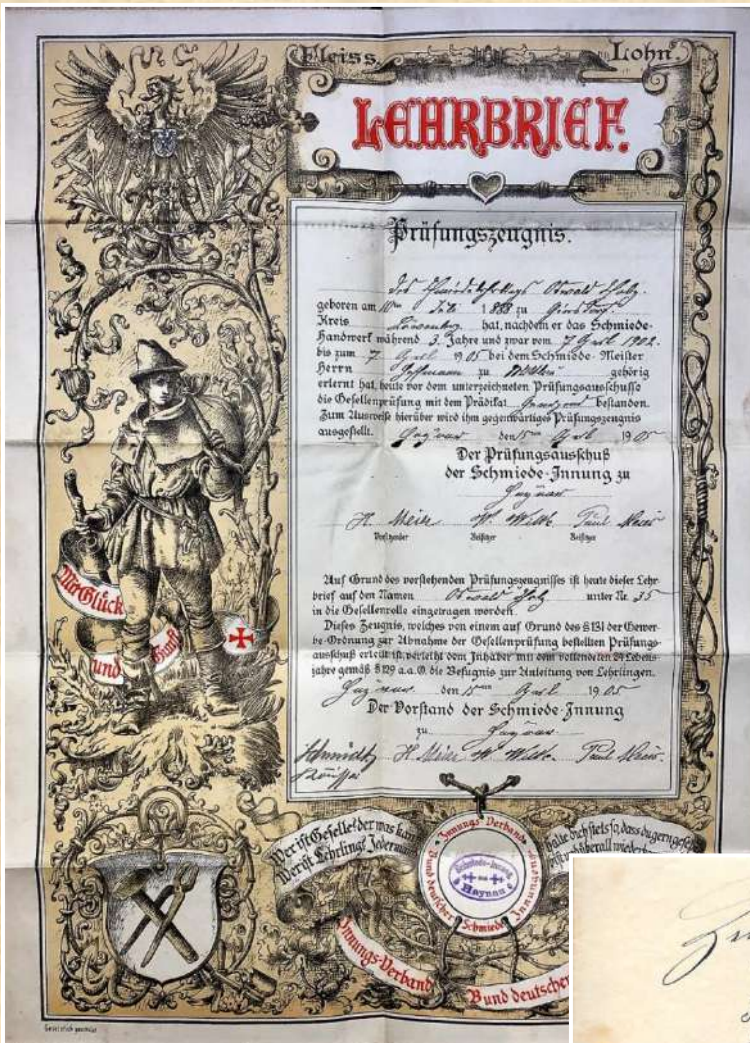 Fleiss Lohn
LEHRBRIEF.
Prüfungszeugnis.
Des Schmiedelehrlings Oswald
geboren am 10ten Juli 1888 zu
Kreis Löwenberg hat, nachdem er das Schmiede-
Handwerk während 3. Jahre und zwar vom 7 April 1902.
bis zum 7 April 1905 bei dem Schmiede-Meister
Herrn Hoffmann zu gehörig
erlernt hat, heute vor dem unterzeichneten Prüfungsausschusse
die Gesellenprüfung mit dem Prädikat bestanden.
Zum Ausweise hierüber wird ihm gegenwärtiges Prüfungszeugnis
ausgestellt. Haynau den 15ten April 1905
Der Prüfungsausschuß
der Schmiede-Innung zu
Haynau
H. Meier W. Wilde Paul
Vorsitzender Beisitzer Beisitzer
Auf Grund des vorstehenden Prüfungszeugnisses ist heute dieser Lehr-
brief auf den Namen Oswald unter Nr. 35
in die Gesellenrolle eingetragen worden.
Dieses Zeugnis, welches von einem auf Grund des § 131 der Gewer-
be-Ordnung zur Abnahme der Gesellenprüfung bestellten Prüfungs-
ausschuß erteilt ist, verleiht dem Inhaber mit dem vollendeten 24 Lebens-
jahre gemäß § 129 a.a.O. die Befugnis zur Anleitung von Lehrlingen.
Haynau den 15ten April 1905
Der Vorstand der Schmiede-Innung
zu Haynau
Schmidt H. Meier W. Wilde Paul
Mit Glück
und Gunst
Wer ist Geselle? der was kann
Wer ist Lehrling? Jederma
halte dich stets so, dass du gern geseh
überall wieder
Innungs-Verband
Bund deutscher Schmiede-Innungen
Schmiede-Innung
zu
Haynau
Innungs-Verband
Bund deutscher
Gesetzlich geschützt